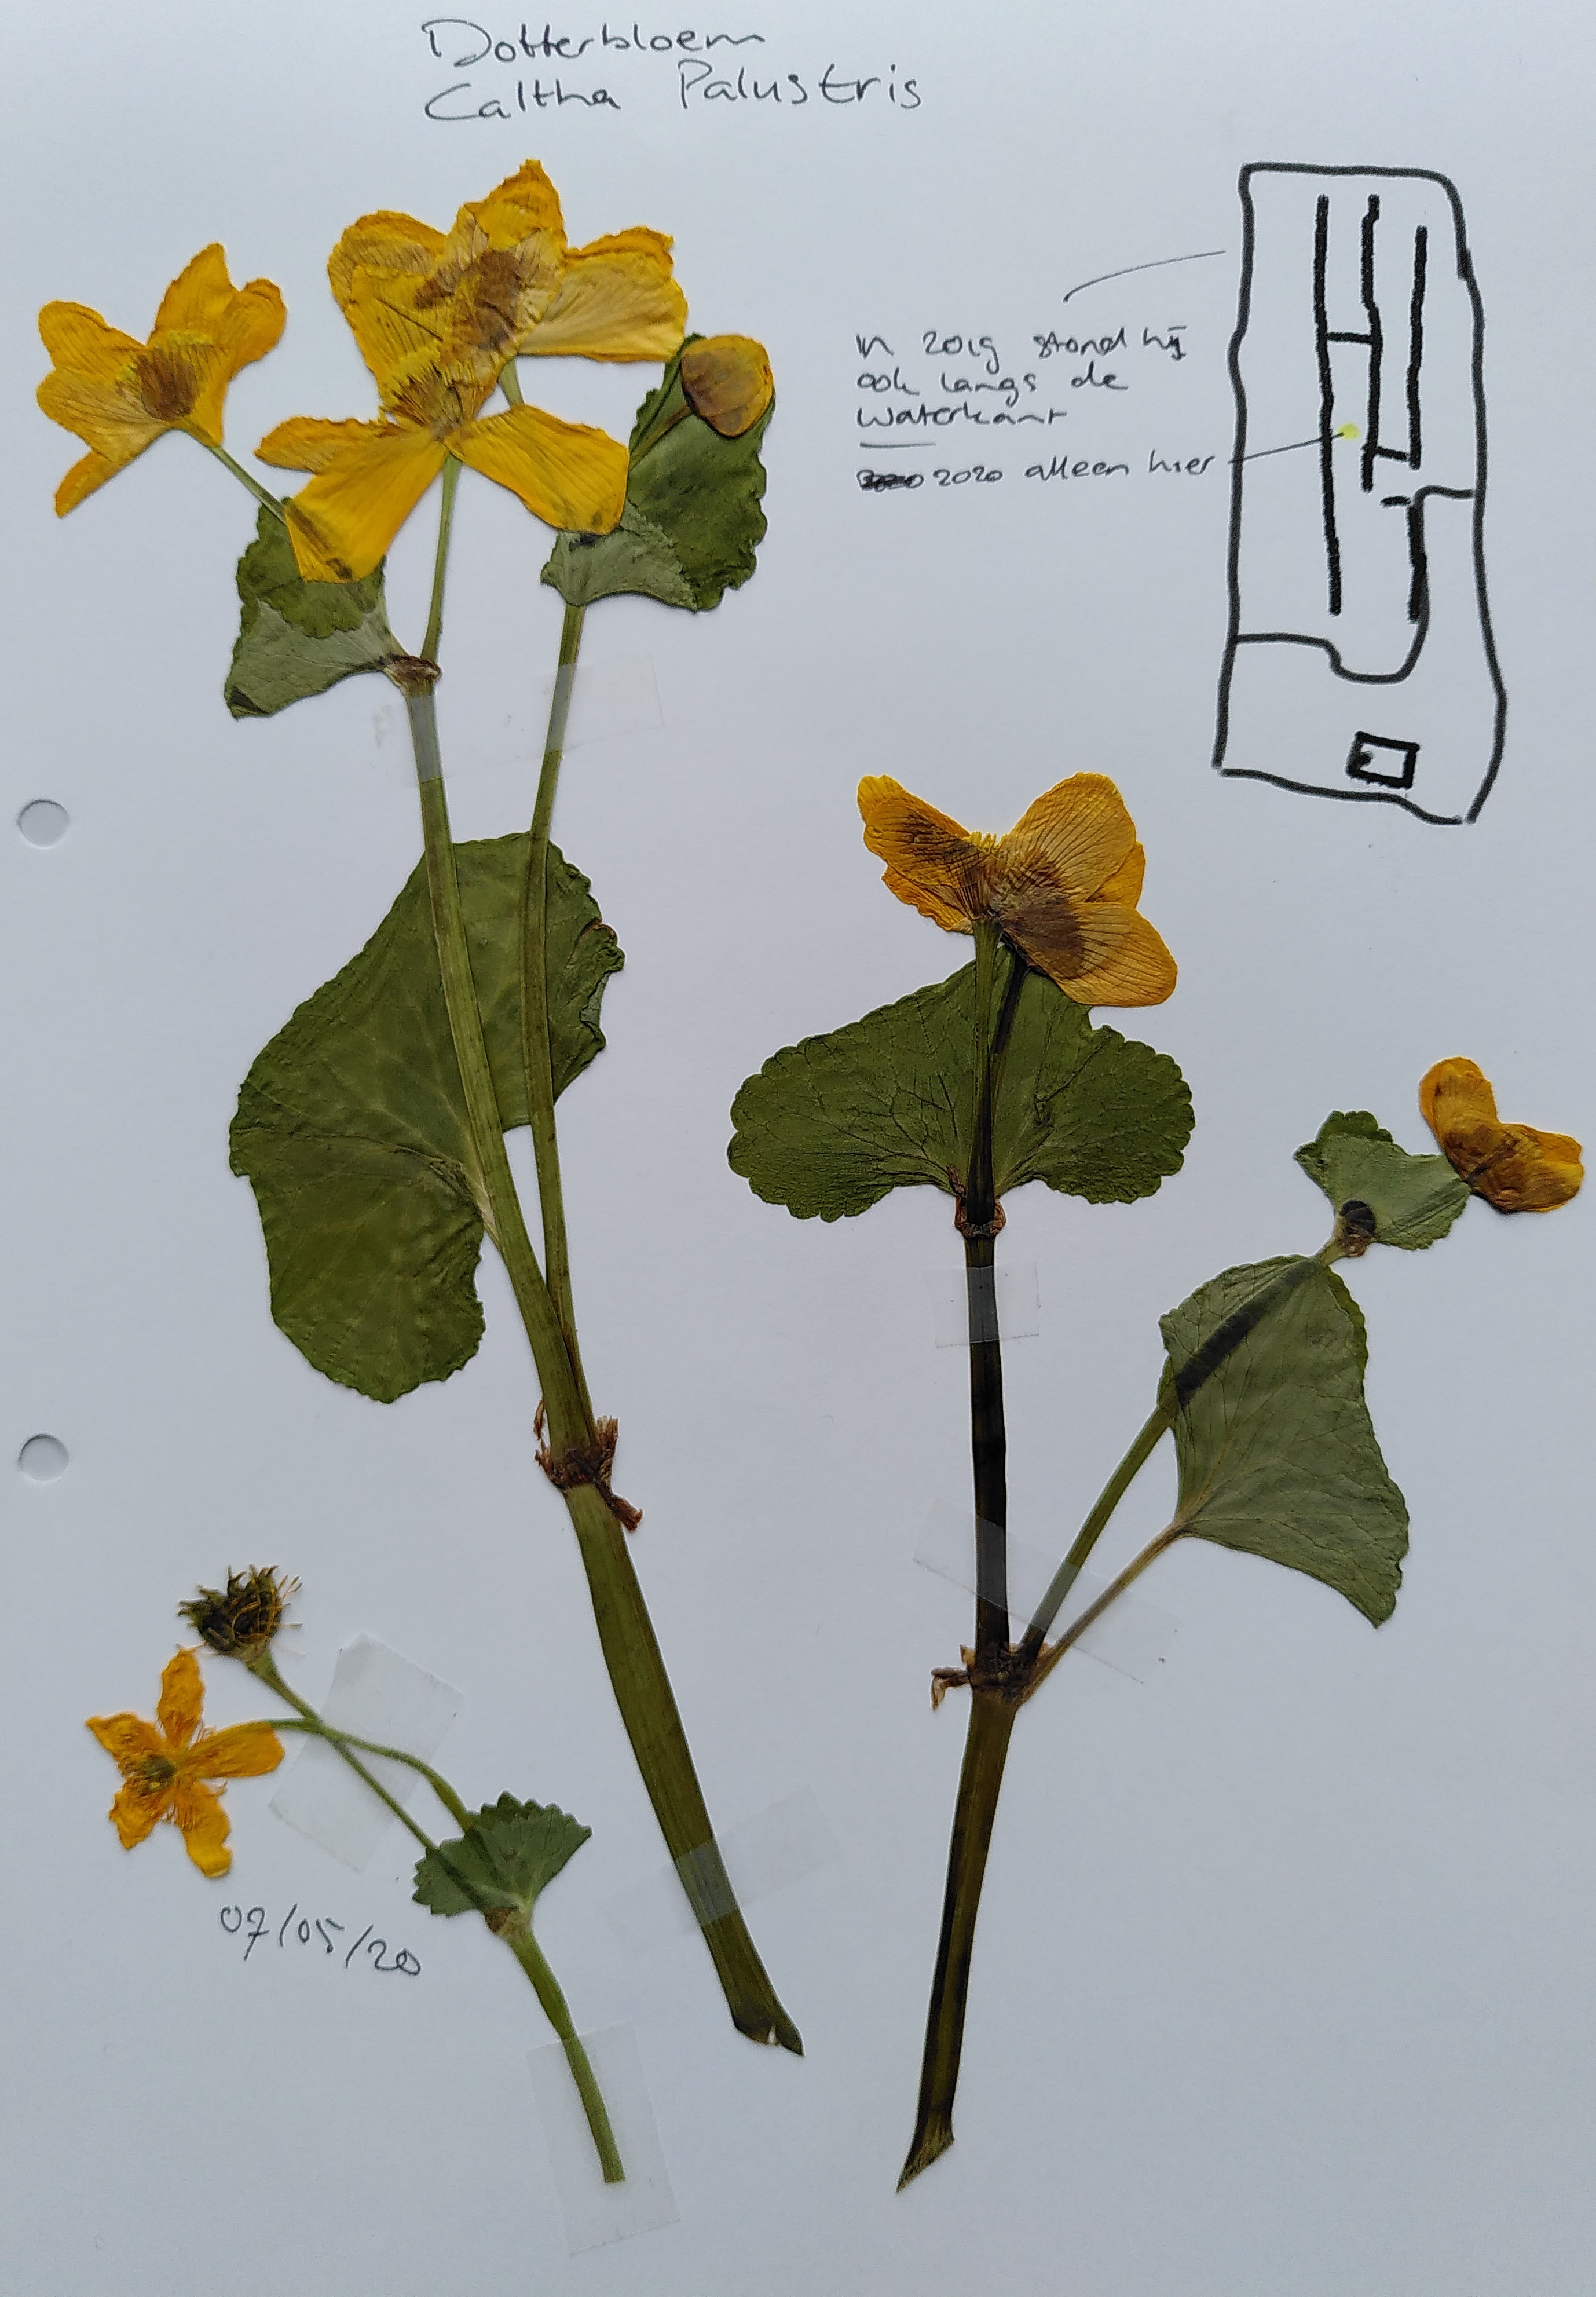 Dotterbloem
Caltha Palustris
in 2019 stond hij
ook langs de
waterkant
2020 alleen hier
07/05/20